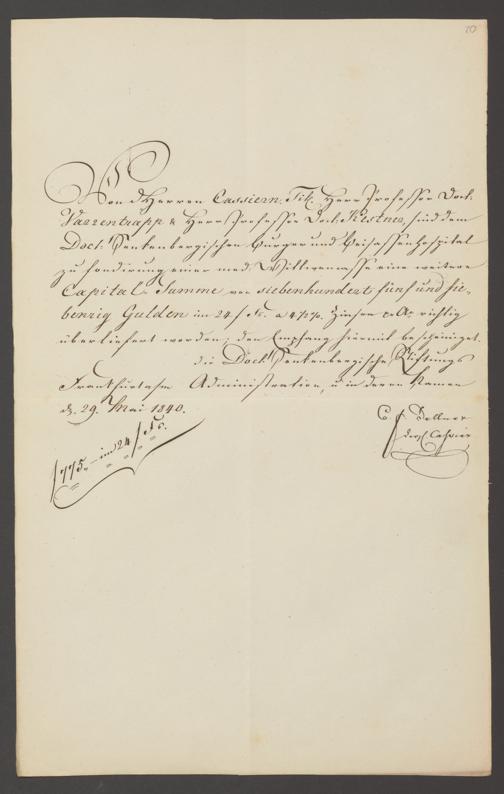 20
Von d. Herren Cassieren, Tit. Herr Professor Doct.
Varrentrapp & Herr Professor Doct. Kestner, sind dem
Doct. Senkenbergischen Bürger und Beisassen Hospital
zu fondirung einer med. Wittwencasse eine weitere
Capital-Summe von siebenhundert fünf und sie-
benzig Gulden im 24 f Fs. a % Zinsen p. Ao. richtig
überliefert worden, den Empfang hiermit bescheiniget.
die Doct. Senkenbergische Stiftungs
Frankfurt a/m Administration, u in deren Namen
d. 29. Mai 1840.
Dellner
f 775,— im 24 f Fs.
Cassier